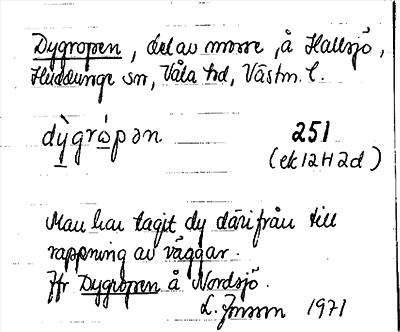 Dygropen, del av mosse, å Hallsjö,
Huddunge sn, Våla hd, Västm. l.
dỳ̲gró̲pən 251
(ek 12H2d)
Man har tagit dy därifrån till
rappning av väggar.
Jfr Dygropen å Nordsjö.
L. Jonson 1971